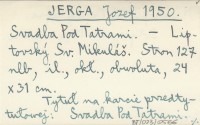 JERGA Jozef 1950.
Svadba Pod Tatrami. – Lip-
tovský Sv. Mikuláš. Stron 127
nlb, il., okł., obwoluta, 24
x 31 cm.
Tytuł na karcie przedty-
tułowej: Svadba Pod Tatrami.